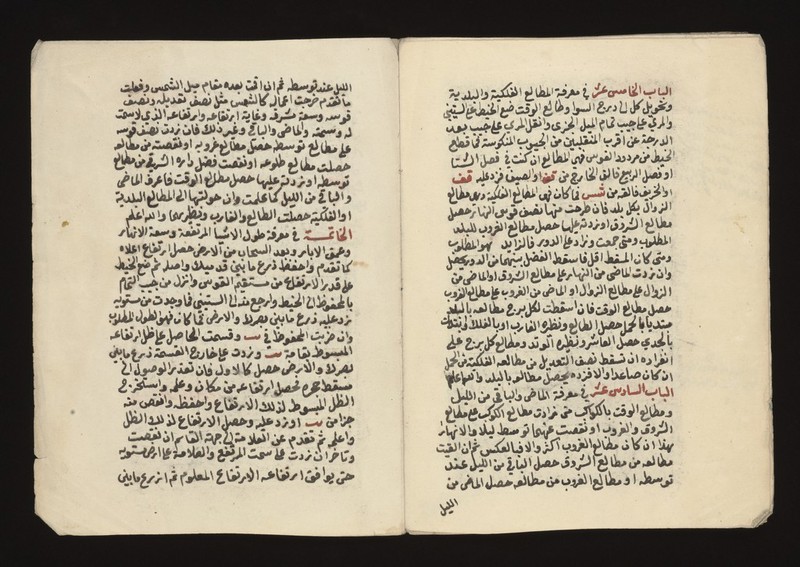 الباب الخامس عشر في معرفة المطالع الفلكية والبلدية
وتحويل كل الى درج السوا ومطالع الوقت ضع الخيط على الستيني
والمري على جيب تمام الميل الجزى وانقل المري على جيب بعد
الدرجة عن اقرب المنقلبين من الجيوب المنكوسة فما قطع
الخيط من مردود القوس فهي المطالع ان كنت في فصل الشتا
او فصل الربيع فالق الخارج من قف والصيف فزد عليه قف
او الخريف فالقه من شس فما كان فهي المطالع الفلكية وهي مطالع
الزوال بكل بلد فان طرحت منها نصف قوس النهار حصل
مطالع الشروق او زدته عليها حصل مطالع الغروب للبلد
المطلوب ومتى جمعت وزاد على الدور فالزايد هو المطلوب
ومتى كان المسقط اقل فاسقط الفضل بينهما من الدور يحصل
وان زدت الماضي من النهار على مطالع الشروق او الماضي من
الزوال على مطالع الزوال او الماضي من الغروب على مطالع الغروب
حصل مطالع الوقت فان اسقطت لكل برج مطالعه بالبلد
مبتديا بالحمل حصل الطالع ونظيره الغارب او بالفلك
بالجدي حصل العاشر ونظيره الوتد ومطالع كل برج على
انفراده ان تسقط نصف التعديل من مطالعه الفلكية
ان كان صاعدا والا فزده يحصل مطالعه بالبلد والله اعلم
الباب السادس عشر في معرفة الماضي والباقي من الليل
ومطالع الوقت بالكوكب متى زادت مطالع الكوكب مع مطالع
الشروق والغروب او نقصت عنهما توسط ليلا والا نهارا
هذا ان كان مطالع الغروب اكثر والا فبالعكس ثم ان القيت
مطالعه من مطالع الشروق حصل الباقي من الليل عند
توسطه او مطالع الغروب من مطالعه حصل الماضي من
الليل
الليل عند توسطه ثم ان اقمت بعده مقام ميل الشمس وفعلت
ما تقدم خرجت اعماله كالشمس مثل نصف تعديله ونصف
قوسه وسعة مشرقه وغاية ارتفاعه وارتفاعه الذي لا سمت
له وسمته والماضي والباقي وغير ذلك فان زدت نصف قوسه
على مطالع توسطه حصل مطالع غروبه او نقصته من مطالعه
حصلت مطالع طلوعه او نقصت فضل دايره الشرقي من مطالع
توسطه او زدته عليها حصل مطالع الوقت فاعرف الماضي
والباقي من الليل كما علمت وان حولتها الى المطالع البلدية
او الفلكية حصلت الطالع والغارب ونظيرهما والله اعلم
الخاتمة في معرفة طول الاشيا المرتفعة وسعة الانهار
وعمق الابار وبعد السحاب من الارض حصل ارتفاع اعلاه
كما تقدم واحفظ ذرع ما بين قدميك واصله ثم ضع الخيط
على قدر الارتفاع من مستقيم القوس وانزل من جيب التمام
بالمحفوظ الى الخيط وارجع منه الى الستيني فما وجدت من مستويه
زد عليه ذرع ما بين بصرك والارض فما كان فهو الطول المطلوب
وان ضربت المحفوظ في يب وقسمت الحاصل على ظل ارتفاعه
المبسوط بقامة يب وزدت على خارج القسمة ذرع ما بين
بصرك والارض حصل كالاول فان تعذر الوصول الى
مسقط حجره فحصل ارتفاعه من مكان وعلمه واستخرج
الظل المبسوط لذلك الارتفاع واحفظه وانقص منه
جزا من يب او زد عليه وحصل الارتفاع لذلك الظل
واعلمه ثم تقدم عن العلامة الى جهة القايم ان نقصت
وتاخر ان زدت على سمت المرتفع والعلامة على ارض مستوية
حتى يوافق ارتفاعه الارتفاع المعلوم ثم اذرع ما بين